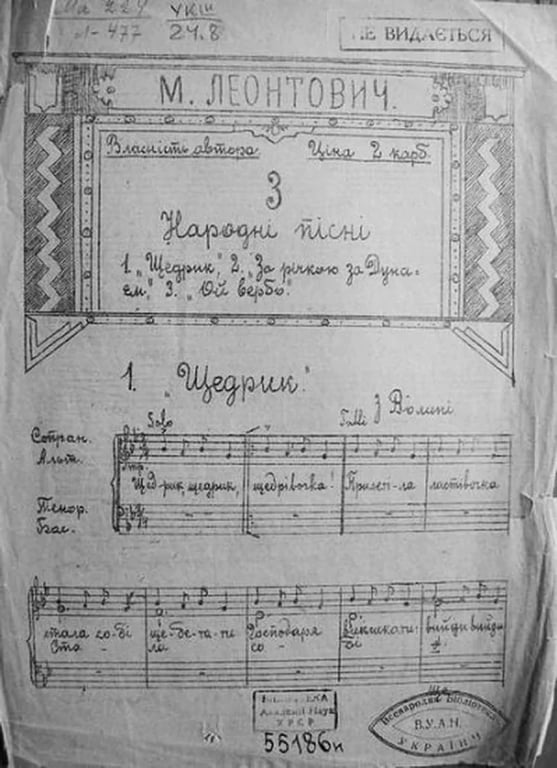 УКІП
24.8
1-477
НЕ ВИДАЄТЬСЯ
М. ЛЕОНТОВИЧ.
Власність автора. Ціна 2 карб.
3
Народні пісні
1. „Щедрик", 2. „За річкою за Дуна-
єм," 3. „Ой вербо".
1. „Щедрик."
Solo Tutti З Волині
Сопран.
Альт.
Щед-рик щедрик, щедрівочка! Прилеті-ла ластівочка
Тенор.
Бас.
стала со-бі ще-бе-та-ти Господаря викликати: вийди вийди
Ста - ла со - бі
БІБЛІОТЕКА
Академії Наук
УРСР
55186н
Всенародня Бібліотека
В.У.А.Н.
УКРАЇНИ